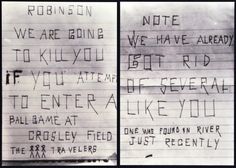 ROBINSON
WE ARE GOING
TO KILL YOU
IF YOU ATTEMPT
TO ENTER A
BALL GAME AT
CROSLEY FIELD
THE TRAVELERS
NOTE
WE HAVE ALREADY
GOT RID
OF SEVERAL
LIKE YOU
ONE WAS FOUND IN RIVER
JUST RECENTLY